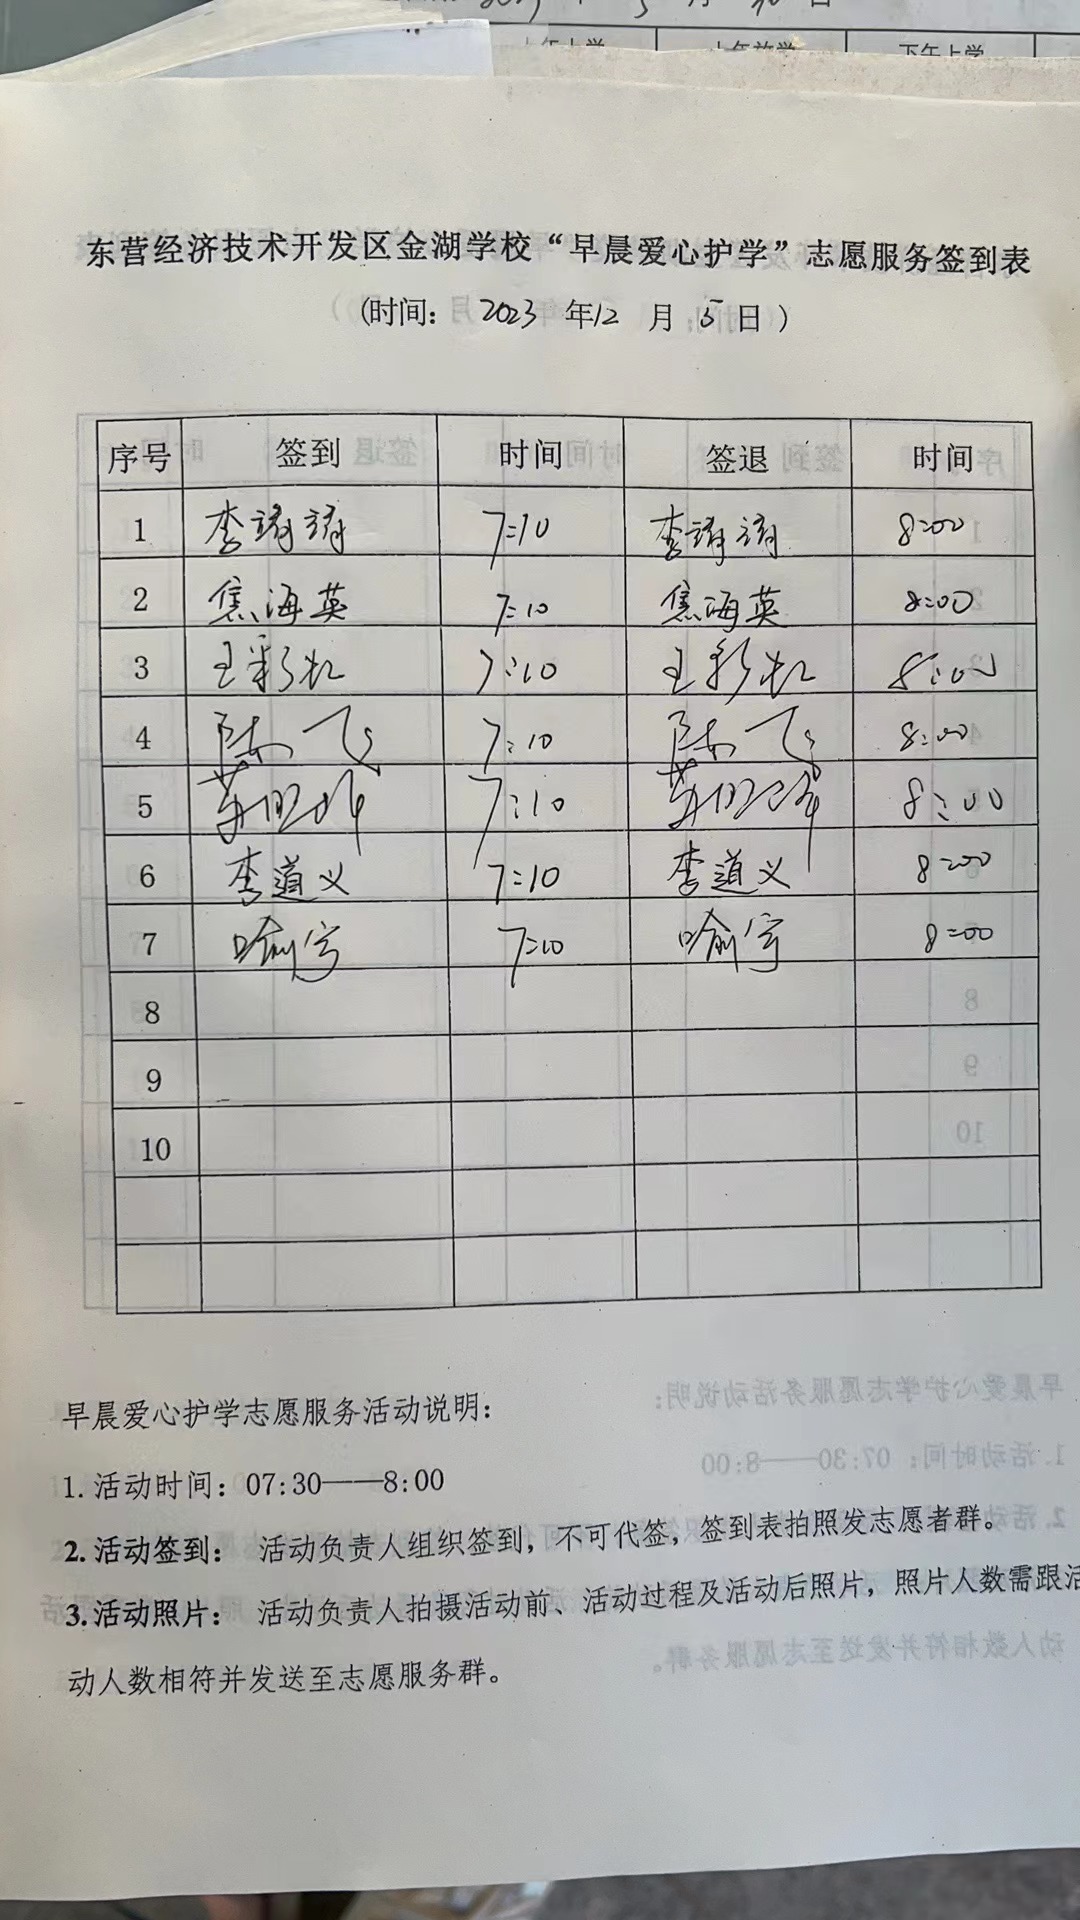 上午放学 下午上学
东营经济技术开发区金湖学校“早晨爱心护学”志愿服务签到表
(时间: 2023 年12 月 5 日)
序号 签到 时间 签退 时间
1 李靖靖 7:10 李靖靖 8:00
2 焦海英 7:10 焦海英 8:00
3 王彩虹 7:10 王彩虹 8:00
4 陈飞 7:10 陈飞 8:00
5 7:10 8:00
6 李道义 7:10 李道义 8:00
7 喻宇 7:10 喻宇 8:00
8
9
10
早晨爱心护学志愿服务活动说明:
1. 活动时间: 07:30——8:00
2. 活动签到: 活动负责人组织签到, 不可代签, 签到表拍照发志愿者群。
3. 活动照片: 活动负责人拍摄活动前、活动过程及活动后照片, 照片人数需跟活
动人数相符并发送至志愿服务群。